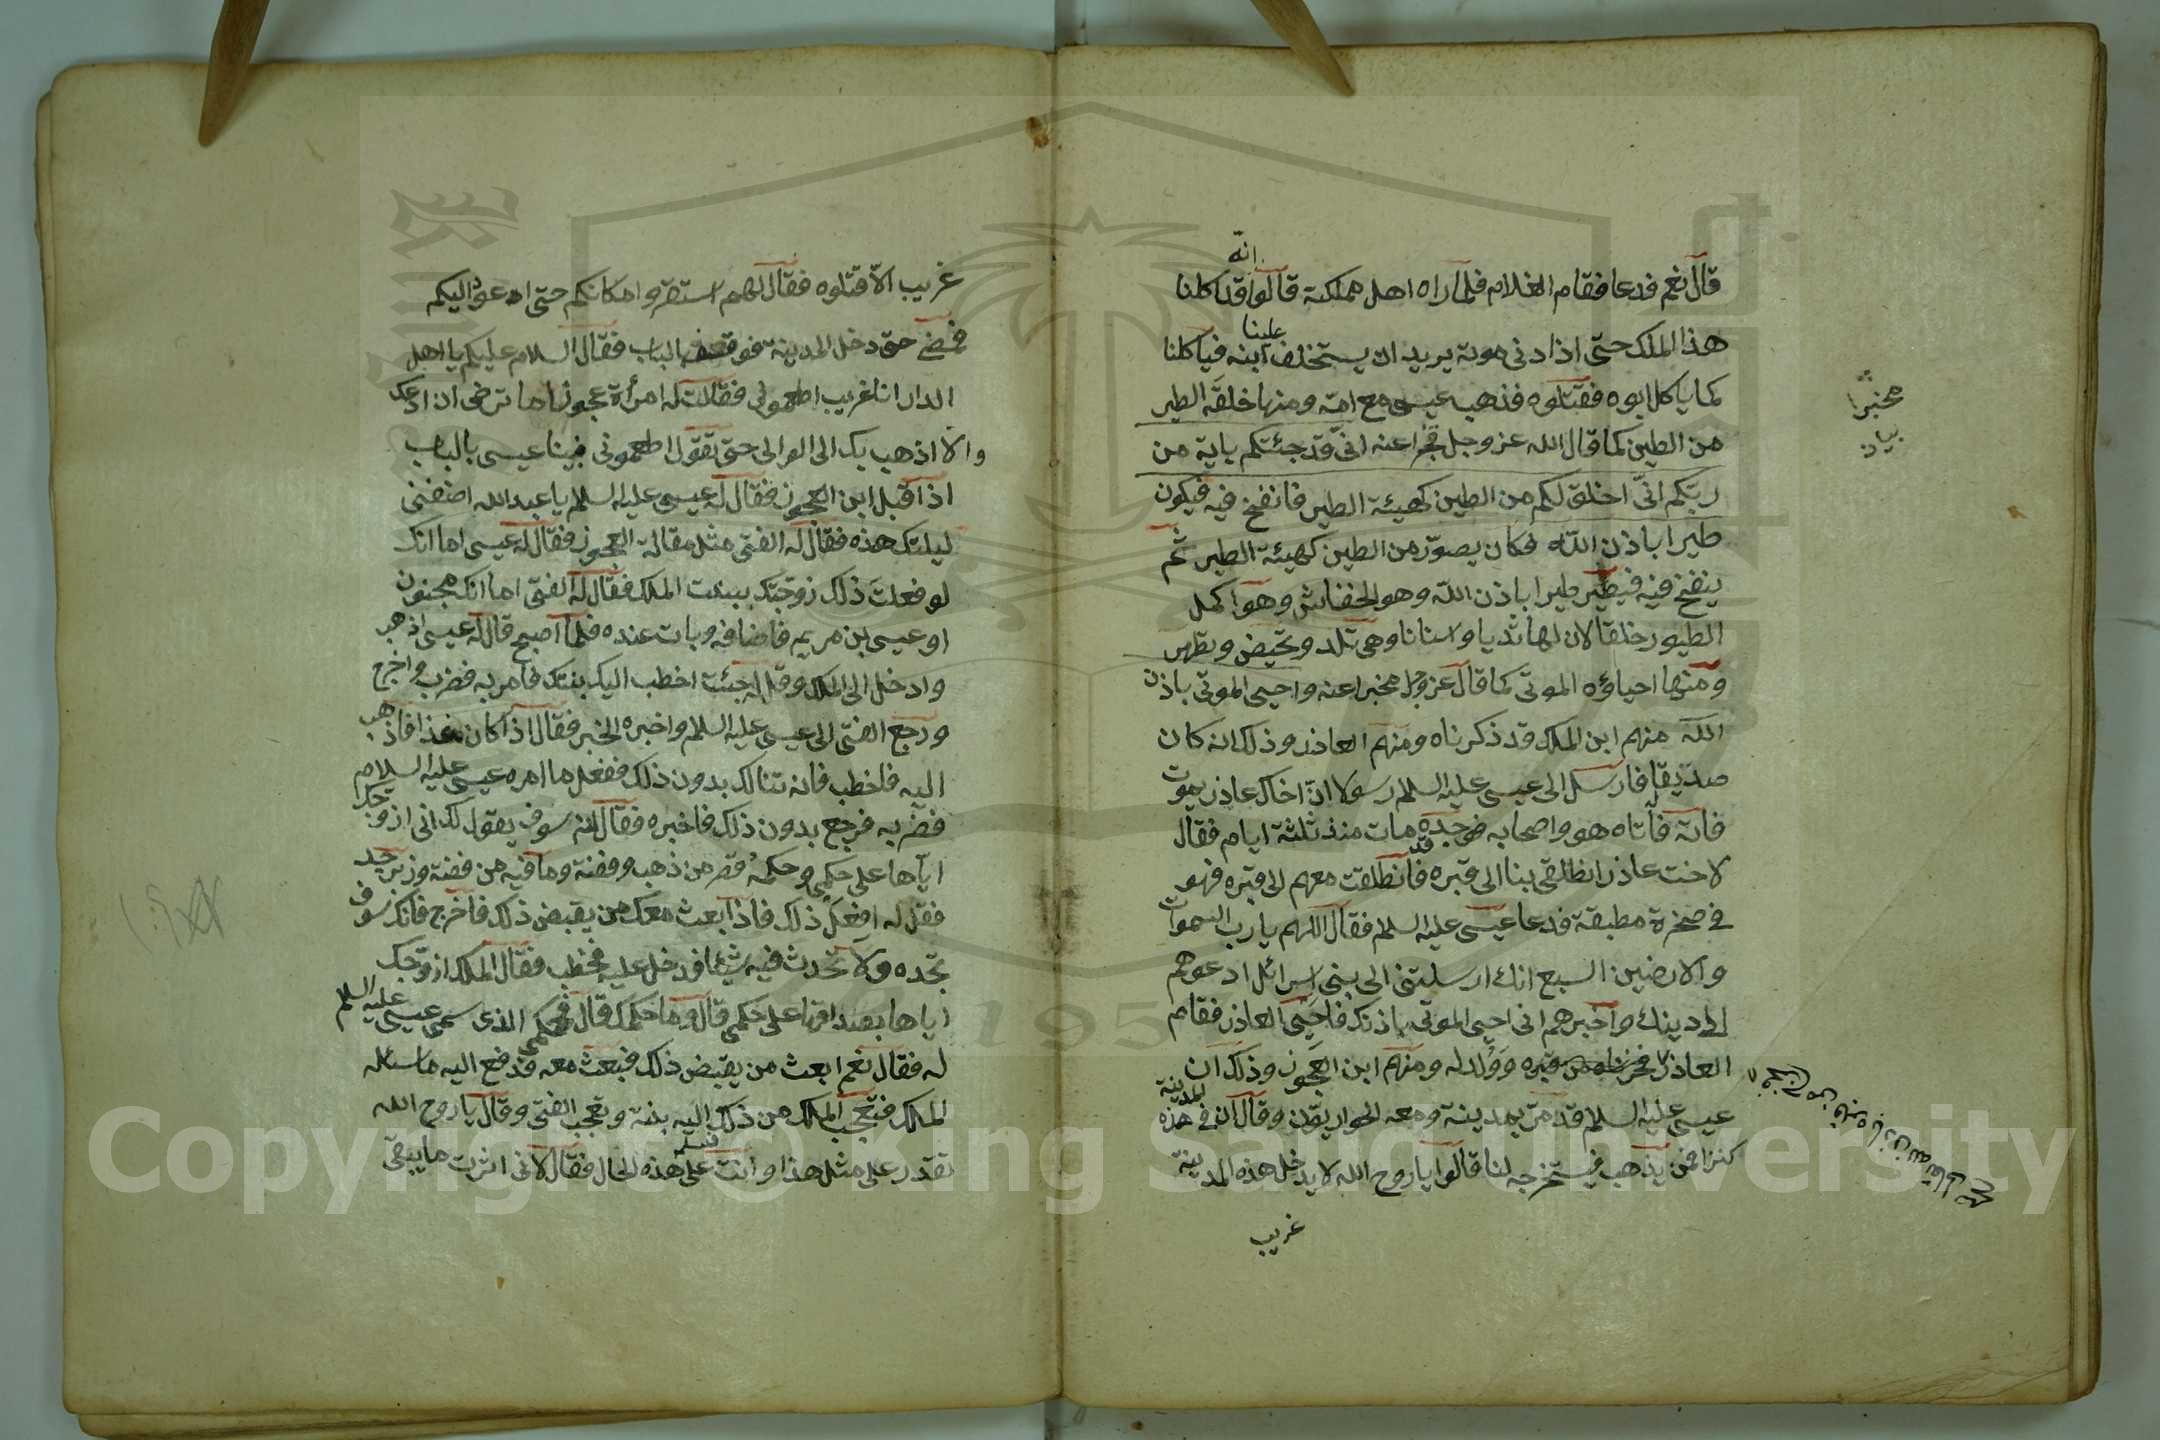 انه
قال نعم فدعا فقام الغلام فلما راه اهل مملكته قالوا قد اكلنا
هذا الملك حتى اذا دنى موته يريد ان يستخلف علينا ابنه فياكلنا
كما ياكل ابوه فقتلوه فذهب عيسى مع امه ومنها خلقه الطير
من الطين كما قال الله عز وجل مخبرا عنه انى قد جئتكم باية من
ربكم انى اخلق لكم من الطين كهيئة الطير فانفخ فيه فيكون
طيرا باذن الله فكان يصور من الطين كهيئة الطير ثم
ينفخ فيه فيطير طيرا باذن الله وهو الخفاش وهو اكمل
الطيور خلقا لان لها ثديا واسنانا وهى تلد وتحيض وتطهر
ومنها احياؤه الموتى كما قال عز وجل مخبرا عنه واحيى الموتى باذن
الله منهم ابن الملك قد ذكرناه ومنهم العاذر وذلك انه كان
صديقا فارسل الى عيسى عليه السلم رسولا ان اخاك عاذر يموت
فاته فاتاه هو واصحابه فوجده قد مات منذ ثلثة ايام فقال
لاخت عاذر انطلقى بنا الى قبره فانطلقت معهم الى قبره فهو
فى صخرة مطبقة فدعا عيسى عليه السلم فقال اللهم يا رب السموات
والارضين السبع انك ارسلتنى الى بنى اسرائل ادعوهم
الى دينك واخبرهم انى احيى الموتى باذنك فاحيى العاذر فقام
العاذر من قبره وولد له ومنهم ابن العجوز وذلك ان
عيسى عليه السلم قد مر بمدينة ومعه الحواريون وقال ان فى هذه المدينة
كنزا فمن يذهب فيستخرجه لنا قالوا يا روح الله لا يدخل هذه المدينة
غريب
مخبرا
بيان
غريب الا قتلوه فقال لهم استقروا مكانكم حتى اعود اليكم
فمضى حتى دخل المدينة فوقف بالباب فقال السلام عليكم يا اهل
الدار انا غريب اطعمونى فقالت له امرأة عجوز اما ترضى ان ادعك
والا اذهب بك الى الوالى حتى تقول اطعمونى فبينا عيسى بالباب
اذ اقبل ابن العجوز فقال له عيسى عليه السلم يا عبد الله اضفنى
ليلتك هذه فقال له الفتى مثل مقالة العجوز فقال له عيسى اما انك
لو فعلت ذلك زوجتك ببنت الملك فقال له الفتى اما انك مجنون
او عيسى بن مريم فاضافه وبات عنده فلما اصبح قال له عيسى اذهب
وادخل الى الملك وقل له جئت اخطب اليك بنتك فامر به فضرب واخرج
ورجع الفتى الى عيسى عليه السلم واخبره الخبر فقال اذا كان غدا فاذهب
اليه فاخطب فانه تنالك بدون ذلك ففعل ما امره عيسى عليه السلام
فضربه فرجع بدون ذلك فاخبره فقال انه سوف يقول لك انى ازوجك
اياها على حكمى وحكمه قصر من ذهب وفضة وما فيه من فضة وزبرجد
فقل له افعل ذلك فاذا بعث معك من يقبض ذلك فاخرج فانك سوف
تجده ولا تحدث فيه شيئا فدخل عليه فخطب فقال الملك ازوجك
اياها بصداقها على حكمى قال وما حكمك قال فحكمى الذى سمى عيسى عليه السلم
له فقال نعم ابعث من يقبض ذلك فبعث معه فدفع اليه ما سئله
الملك فتعجب الملك من ذلك اليه بنته وتعجب الفتى وقال يا روح الله
تقدر على مثل هذا وانت على هذه الحال فقال لانى اثرت ما يبقى
Copyright © King Saud University
195